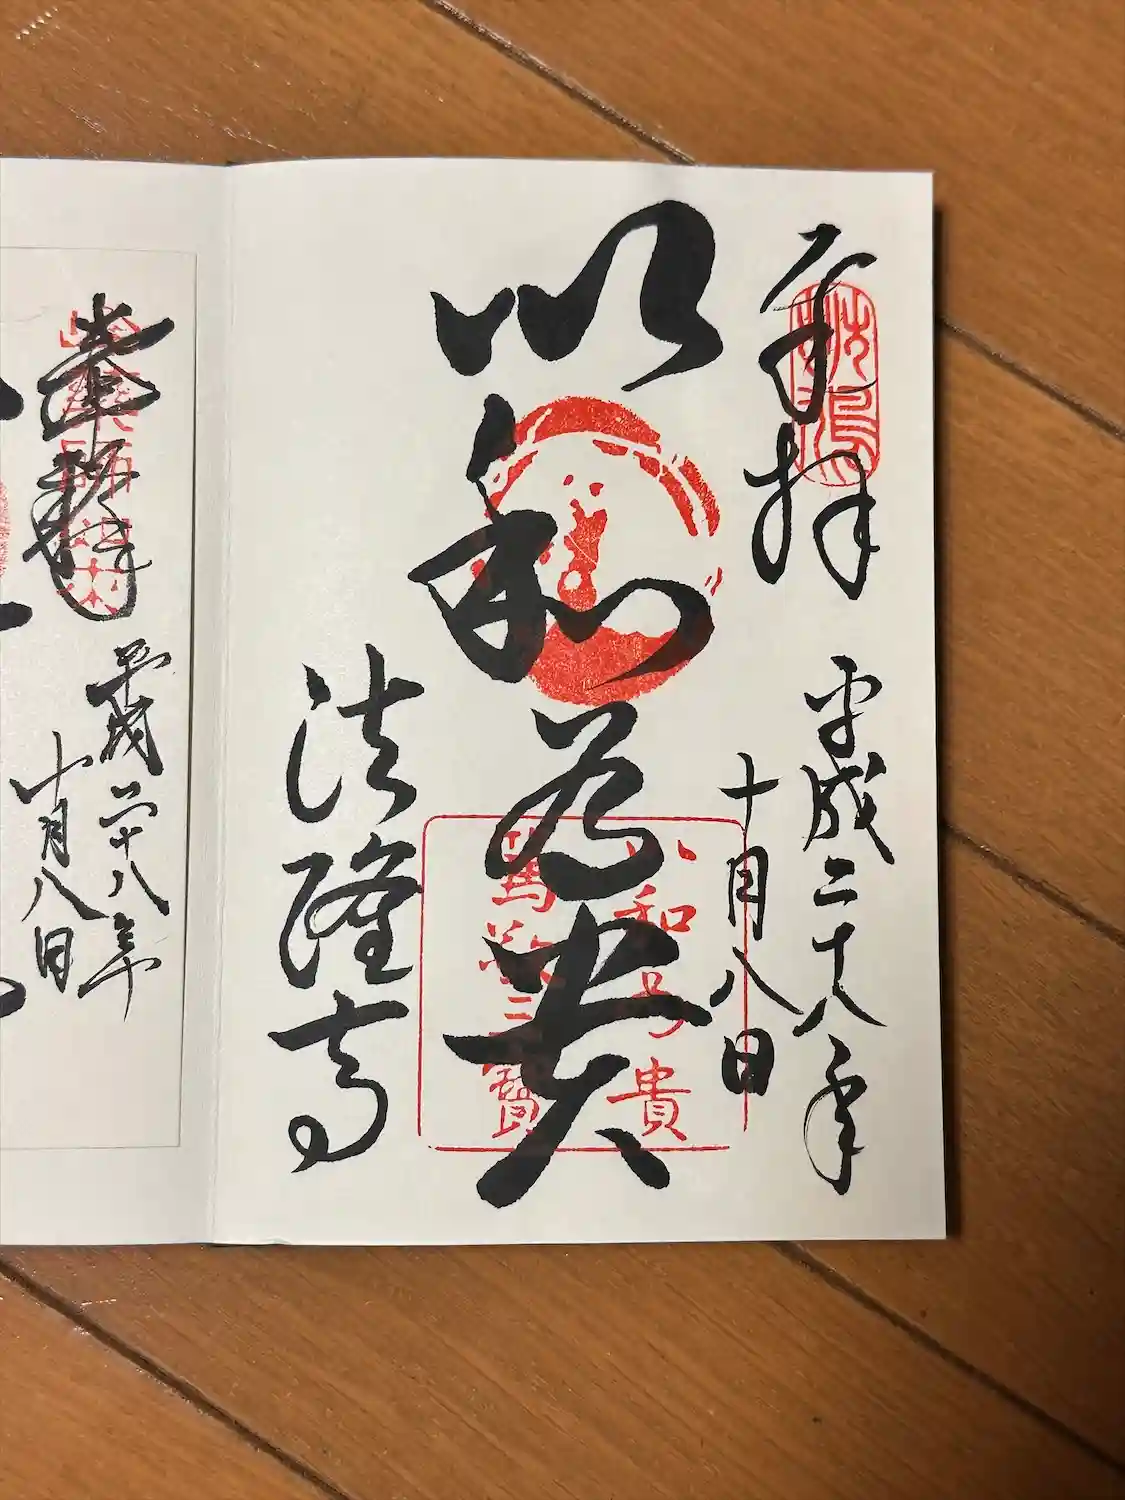 奉拝
平成二十八年
十月八日
以和為貴
法隆寺
斑鳩
以和為貴
篤敬三寶
奉拝
平成二十八年
十月八日